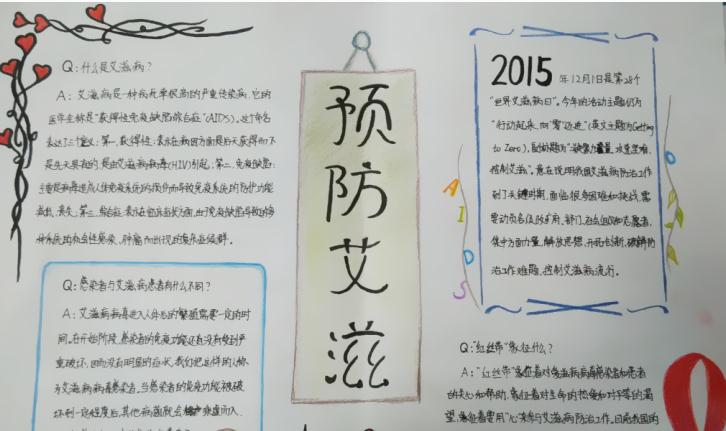 Q:什么是艾滋病？
A：艾滋病是一种病死率很高的严重传染病,它的
医学全称是"获得性免疫缺陷综合症"(AIDS)。这个命名
表达了三个定义：第一,获得性：表示在病因方面是后天获得而不
是先天具有的,是由艾滋病病毒(HIV)引起；第二,免疫缺陷：
主要是病毒造成人体免疫系统的损伤而导致免疫系统的防护功能
第三,综合症：表示在临床症状方面,由于免疫缺陷导致的多
种系统的机会性感染、肿瘤而出现的复杂症候群。
Q：感染者与艾滋病患者有什么不同？
A：艾滋病病毒进入人体后的繁殖需要一定的时
间。在开始阶段,感染者的免疫功能还没有受到严
重破坏,因而没有明显的症状,我们把这样的人称
为艾滋病病毒感染者。当感染者的免疫功能被破
坏到一定程度后,其他病菌就会乘虚而入,
预
防
艾
滋
2015年12月1日是第28个
"世界艾滋病日"。今年的活动主题仍为
"行动起来,向'零'迈进"(英文主题为Getting
to Zero),副标题为"合力攻坚
控制艾滋"。意在说明我国艾滋病防治工作
到了关键时期,面临很多困难和挑战,需
要动员各级政府、部门、社会组织和志愿者,
集中方面力量,解放思想,开拓创新,破解防
治工作难题,控制艾滋病流行。
A
I
D
S
Q:"红丝带"象征什么?
A："红丝带"象征着对艾滋病病毒感染者和患者
的关心和帮助,象征着对生命的热爱和对平等的渴
望,象征着要用"心"来参与艾滋病防治工作。目前我国的